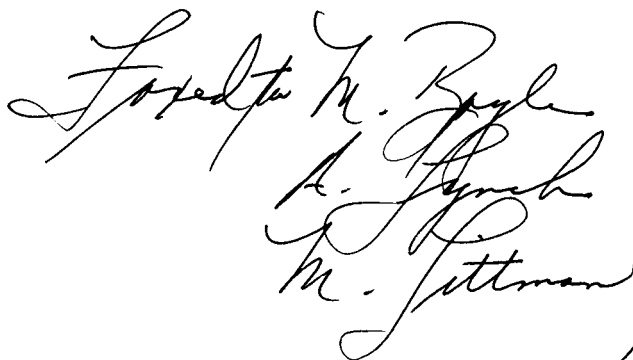 Foxed to M. Boyle
A. Lynch
M. Littman